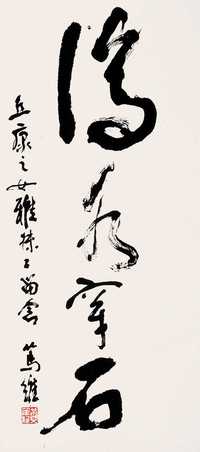 滴水穿石
丘康之女雅留念 篤維